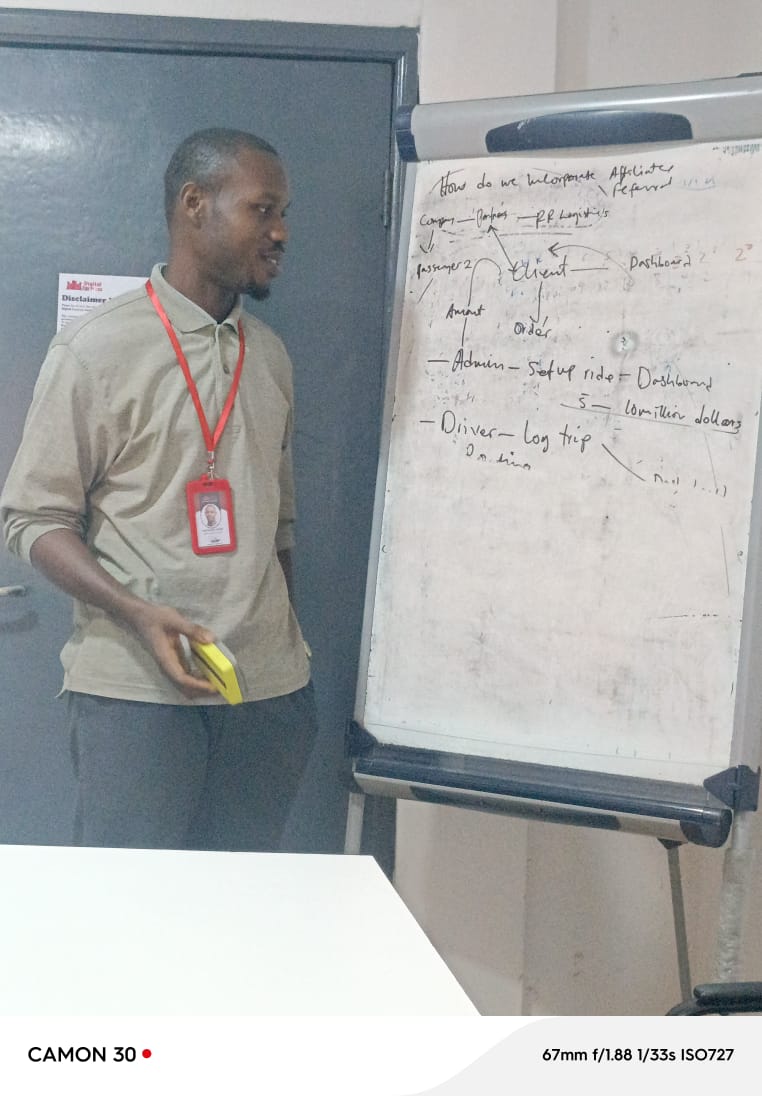 Digital
Disclaimer
How do we Incorporate Affiliates
Referral
Company — Partners — RR Logistics
Passenger 2
Client — Dashboard
2°
Amount
Order
— Admin — Setup ride — Dashboard
5 — 10 million dollars
— Driver — Log trip
CAMON 30
67mm f/1.88 1/33s ISO727